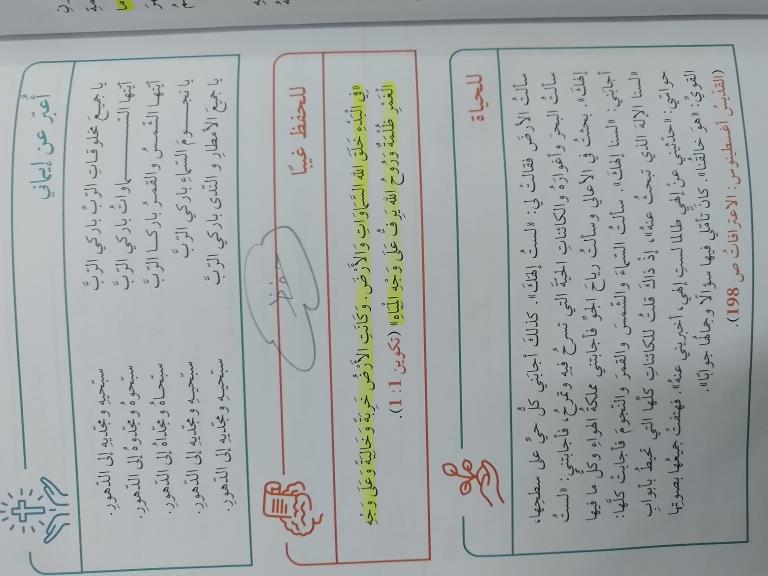 للحياة
سألتُ الأرضَ فقالتْ لي: «لستُ إلهَكَ». كذلكَ أجابَني كلُّ حيٍّ على سطحِها،
سألتُ البحرَ وأغوارَهُ والكائناتِ الحيّةَ التي تسرحُ فيهِ وتمرحُ، فأجابتني: «لستُ
إلهَكَ». بحثتُ في الأعالي وسألتُ رياحَ الجوِّ فأجابتني مملكةُ الهواءِ وكلُّ ما فيها
أجابَني: «لسنا إلهَكَ». سألتُ السّماءَ والشّمسَ والقمرَ والنّجومَ فأجابَتْ كلُّها:
«لسنا الإلهَ الذي تبحثُ عنهُ»، إذْ ذاكَ قلتُ للكائناتِ كلِّها التي تحيطُ بأبوابِ
حواسّي: «حدّثيني عنْ إلهي طالما لستِ إلهي، أخبريني عنهُ». فهتفتْ جميعُها بصوتِها
القويِّ: «هوَ خالقُنا». كانَ تأمّلي فيها سؤالًا وجمالُها جوابًا».
(القدّيسُ أغسطينوس: الاعترافاتُ ص 198).
للحفظ غيبًا
«فِي الْبَدْءِ خَلَقَ اللهُ السَّمَاوَاتِ وَالأَرْضَ. وَكَانَتِ الأَرْضُ خَرِبَةً وَخَالِيَةً وَعَلَى وَجْهِ
الْغَمْرِ ظُلْمَةٌ وَرُوحُ اللهِ يَرِفُّ عَلَى وَجْهِ الْمِيَاهِ» (تكوين 1: 1).
حفظ
أعبّر عن إيماني
يا جميعَ مخلوقاتِ الرّبِّ باركي الرّبَّ سبّحيهِ ومجّديهِ إلى الدّهورِ.
أيّتها السّماواتُ باركي الرّبَّ سبّحوهُ ومجّدوهُ إلى الدّهورِ.
أيّتها الشّمسُ والقمرُ باركا الرّبَّ سبّحاهُ ومجّداهُ إلى الدّهورِ.
يا نجومَ السّماءِ باركي الرّبَّ سبّحيهِ ومجّديهِ إلى الدّهورِ.
يا جميعَ الأمطارِ والنّدى باركي الرّبَّ سبّحيهِ ومجّديهِ إلى الدّهورِ.